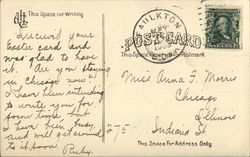 This Space for Writing
Received your
Easter card and
was glad to have
it. Are you staying
in Chicago now?
I have been intending
to write you for
some time, but
I have been busy,
and will afterward
to it soon.
Ruby.
FAULKTON
POST CARD
Miss Anna F. Morris
Chicago
Illinois
275 Indiana St
This Space for Address Only